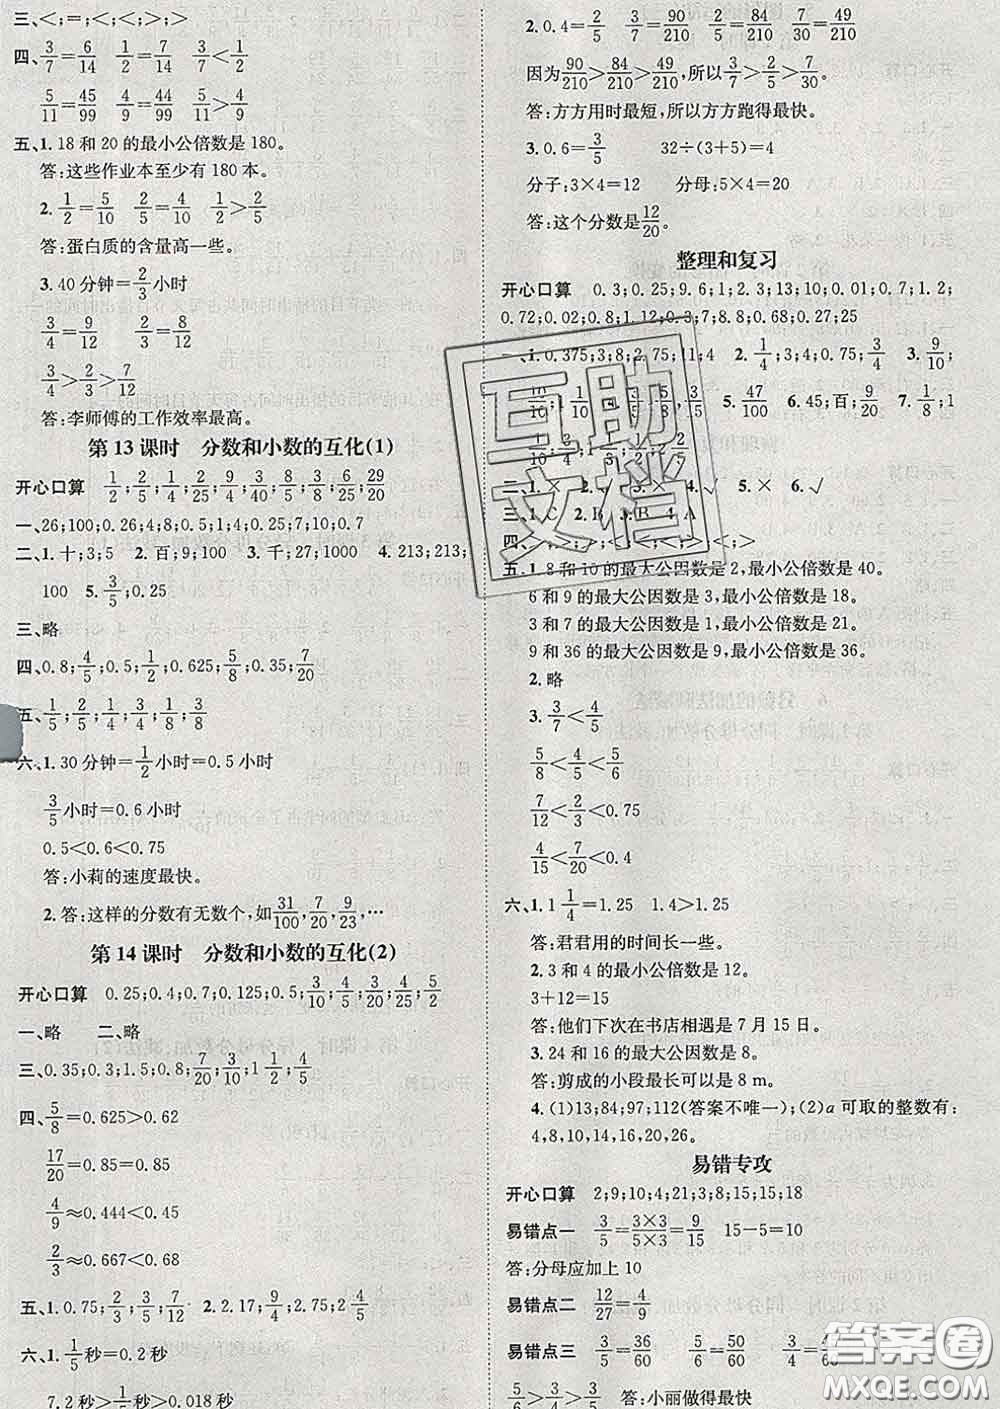 三、<;=;<;<;>;>
四、3/7=6/14 1/2=7/14 3/7<1/2
5/11=45/99 4/9=44/99 5/11>4/9
五、1. 18 和 20 的最小公倍数是 180。
答:这些作业本至少有 180 本。
2. 1/2=5/10 2/5=4/10 1/2>2/5
答:蛋白质的含量高一些。
3. 40 分钟=2/3小时
3/4=9/12 2/3=8/12
3/4>2/3>7/12
答:李师傅的工作效率最高。
第 13 课时 分数和小数的互化(1)
开心口算 1/2;2/5;1/4;2/25;9/4;3/40;8/5;3/25;6/25;29/20
一、26;100;0.26;4;8;0.5;1;4;0.25;7;10;0.7
二、1. 十;3;5 2. 百;9;100 3. 千;27;1000 4. 213;213;
100 5. 3/5;0.25
三、略
四、0.8;4/5;0.5;1/2;0.625;5/8;0.35;7/20
五、1/5;2/5;3/4;1/4;1/8;3/8
六、1. 30 分钟=1/2小时=0.5 小时
3/5小时=0.6 小时
0.5<0.6<2
答:小莉的速度最快。
2. 答:这样的分数有无数个,如31/100,7/20,9/23,…
第 14 课时 分数和小数的互化(2)
开心口算 0.25;0.4;0.7;0.125;0.5;3/10;4/5;3/20;4/25;5/2
一、略 二、略
三、0.35;0.3;1.5;0.8;7/20;3/10;1 1/2;4/5
四、5/8=0.625>0.62
17/20=0.85=0.85
4/9≈0.444<0.45
2/3≈0.667<0.68
五、1. 0.75;2/3;3/5;7/12 2. 2.17;9/4;2.75;2 4/5
六、1. 1/5秒=0.2 秒
7.2 秒>1/5秒>0.018 秒
2. 0.4=2/5 2/5=84/210 3/7=90/210 7/30=49/210
因为90/210>84/210>49/210,所以3/7>2/5>7/30。
答:方方用时最短,所以方方跑得最快。
3. 0.6=3/5 32÷(3+5)=4
分子:3×4=12 分母:5×4=20
答:这个分数是12/20。
整理和复习
开心口算 0.3;0.25;9.6;1;2.3;13;10;0.01;0.7;1.2;
0.72;0.02;0.8;1.12;0.3;7;8.8;0.68;0.27;25
一、1. 0.375;3;8;2.75;11;4 2. 1/4;3;4;0.75;3/4 3. 9/10;
5. 47/100 6. 45;百;9/20 7. 1/8;1
二、1. × 2. × 3. × 4. √ 5. × 6. √
三、1. C 2. B 3. B 4. A
五、1. 8 和 10 的最大公因数是 2,最小公倍数是 40。
6 和 9 的最大公因数是 3,最小公倍数是 18。
3 和 7 的最大公因数是 1,最小公倍数是 21。
9 和 36 的最大公因数是 9,最小公倍数是 36。
2. 略
3. 3/7<4/5
5/8<4/5<5/6
7/12<2/3<0.75
4/15<7/20<0.4
六、1. 1 1/4=1.25 1.4>1.25
答:君君用的时间长一些。
2. 3 和 4 的最小公倍数是 12。
3+12=15
答:他们下次在书店相遇是 7 月 15 日。
3. 24 和 16 的最大公因数是 8。
答:剪成的小段最长可以是 8 m。
4. (1)13;84;97;112(答案不唯一);(2)a 可取的整数有:
4,8,10,14,16,20,26。
易错专攻
开心口算 2;9;10;4;21;3;8;15;15;18
易错点一 3/5=3×3/5×3=9/15 15-5=10
答:分母应加上 10
易错点二 12/27=4/9
易错点三 3/5=36/60 5/6=50/60 3/4=45/60
5/6>3/4>3/5 答:小丽做得最快
互助
文档
答案圈
MXQE.COM